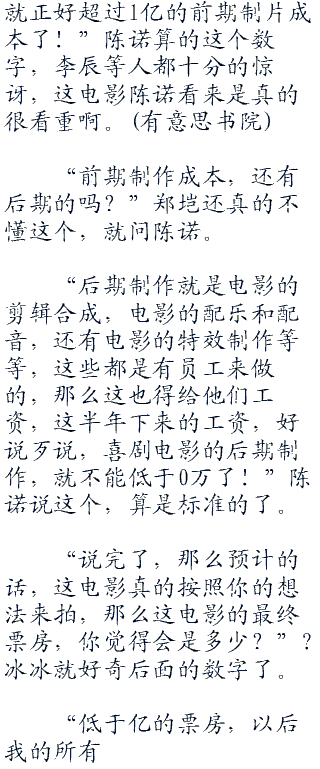 就正好超过1亿的前期制片成
本了！”陈诺算的这个数
字，李辰等人都十分的惊
讶，这电影陈诺看来是真的
很看重啊。(有意思书院)
“前期制作成本，还有
后期的吗？”郑垲还真的不
懂这个，就问陈诺。
“后期制作就是电影的
剪辑合成，电影的配乐和配
音，还有电影的特效制作等
等，这些都是有员工来做
的，那么这也得给他们工
资，这半年下来的工资，好
说歹说，喜剧电影的后期制
作，就不能低于0万了！”陈
诺说这个，算是标准的了。
“说完了，那么预计的
话，这电影真的按照你的想
法来拍，那么这电影的最终
票房，你觉得会是多少？”？
冰冰就好奇后面的数字了。
“低于亿的票房，以后
我的所有